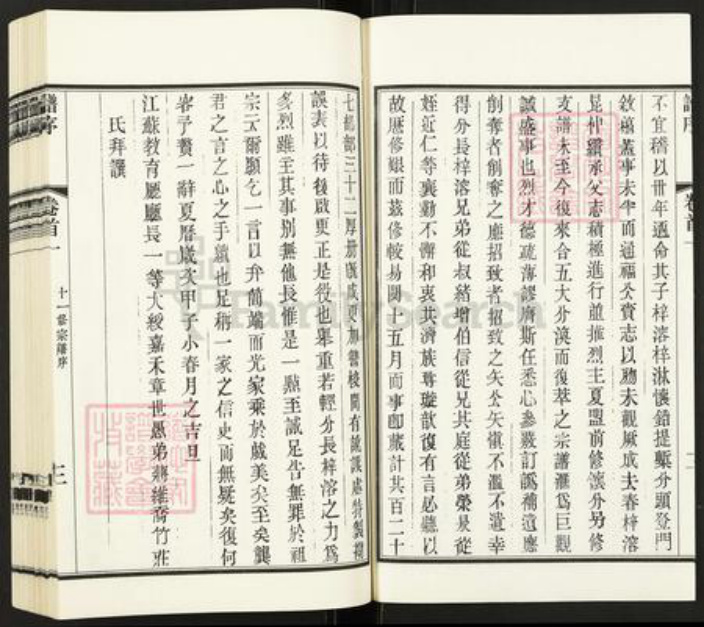 不宜稽以卅年適命其子梓溶梓淋懷鉛提槧分頭登門
敘蘊蓋事未半而通福公賫志以歿未觀厥成去春梓溶
昆仲纘承父志積極進行並推烈主夏盟前修懷分另修
支譜未至今復來合五大分渙而復萃之宗譜滙為巨觀
誠盛事也烈才德疏薄謬膺斯任悉心參發訂譌補遺應
削奪者削奪之應招致者招致之矢公矢慎不濫不遺幸
得分長梓溶兄弟從叔緒增伯信從兄其庭從弟榮景從
姪近仁等襄勷不懈和衷共濟族尊璇歆復有言必聽以
故歷修艱而茲修較易閱十五月而事即蕆計共百二十
七楊部三十二厚册既成更加讐校間有訛譌處特製糾
誤表以待後啟更正是役也舉重若輕分長梓溶之力為
多烈雖主其事別無他長惟是一點至誠足告無罪於祖
宗云爾願乞一言以弁簡端而光家乘於戲美矣至矣龔
君之言之心之手續也足稱一家之信史而無疑矣復何
容予贅一辭夏曆歲次甲子小春月之吉旦
江蘇教育廳廳長一等大綬嘉禾章世愚弟蔣維喬竹莊
氏拜譔
譜序
卷首一
十一修宗譜序
三
譜序
卷首一
二
FamilySearch